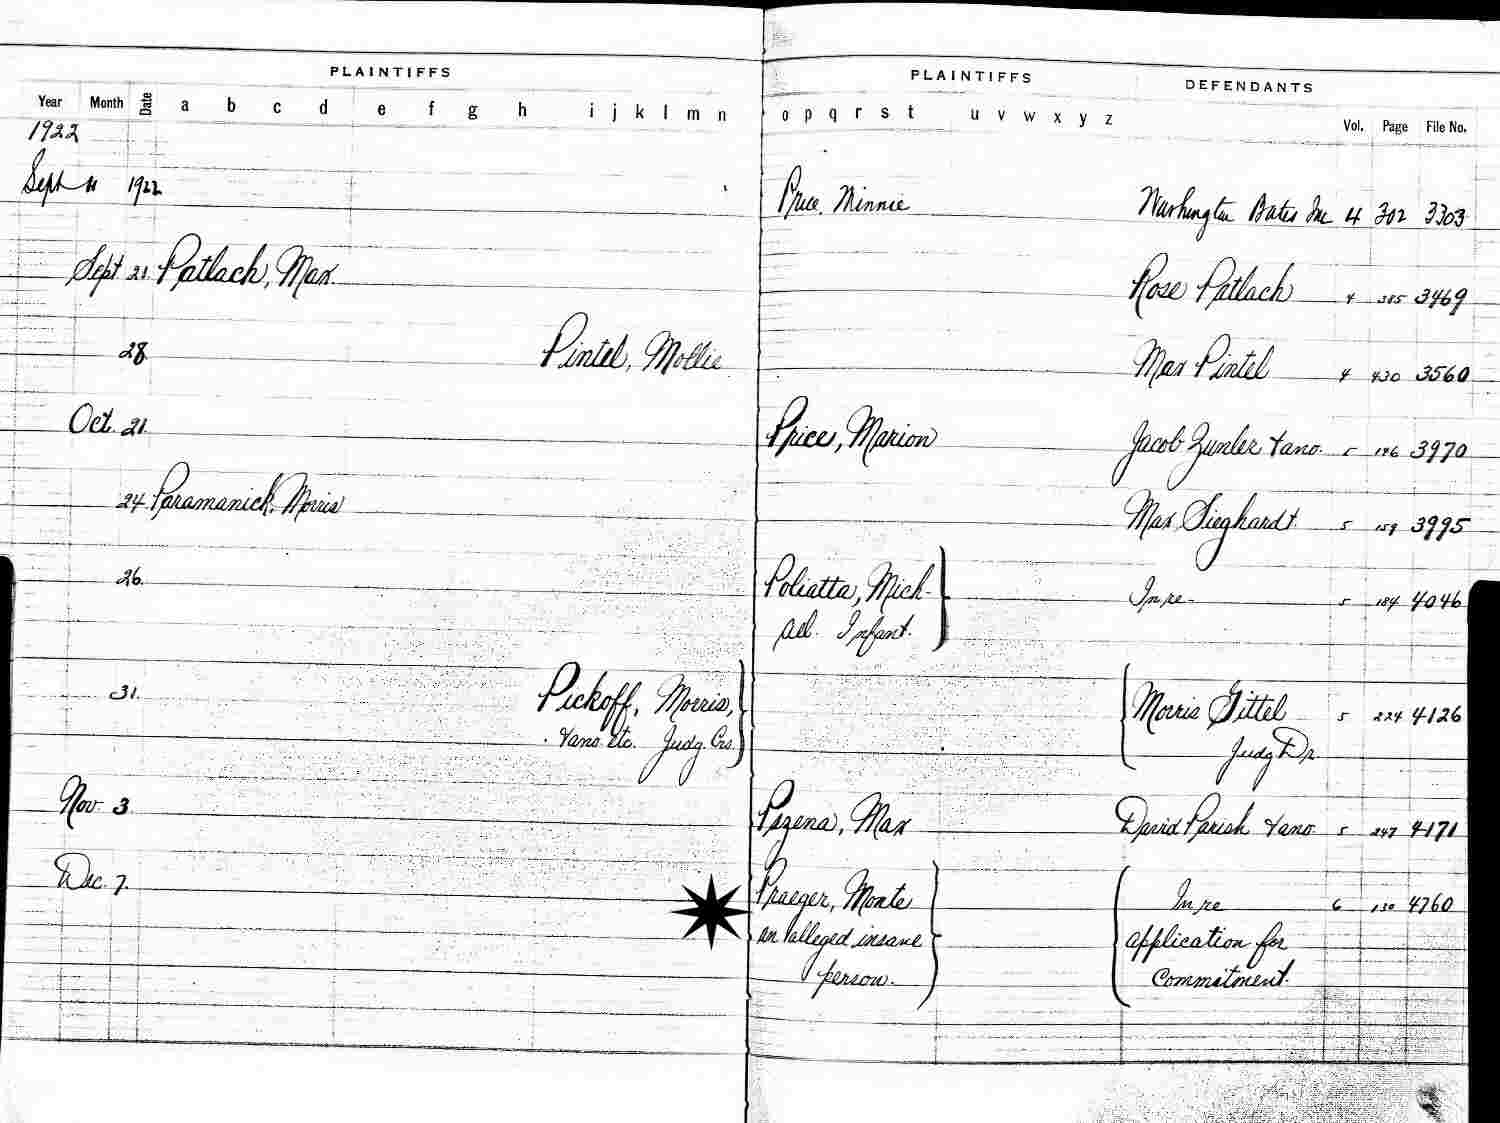 PLAINTIFFS PLAINTIFFS DEFENDANTS
Year Month Date a b c d e f g h i j k l m n o p q r s t u v w x y z Vol. Page File No.
1922
Sept 11 1922 Price, Minnie Washington Bates Inc 4 302 3303
Sept 21 Patlach, Max. Rose Patlach 4 385 3469
28 Pintel, Mollie Max Pintel 4 430 3560
Oct. 21. Price, Marion Jacob Zunler & ano. 5 146 3970
24 Paramanick, Morris Max Sieghardt 5 159 3995
26. Poliatta, Mich- In re - 5 184 4046
ael. Infant.
31. Pickoff, Morris, Morris Gittel 5 224 4126
& ano. etc. Judg. Crs. Judg Dr.
Nov. 3 Pszena, Max David Parish & ano. 5 247 4171
Dec. 7. Praeger, Monte In re 6 130 4760
an alleged insane application for
person. Commitment.